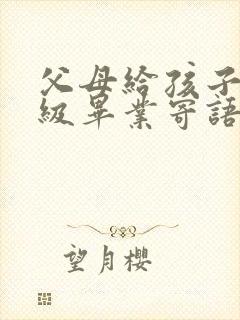 父母給孩子
級畢業寄語
望月櫻